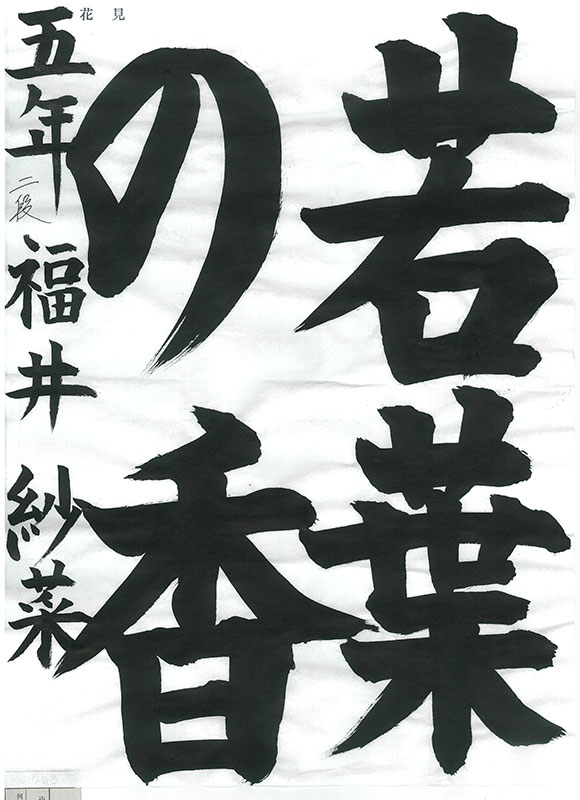 若葉
の香
五年 二段 福井 紗菜
花見